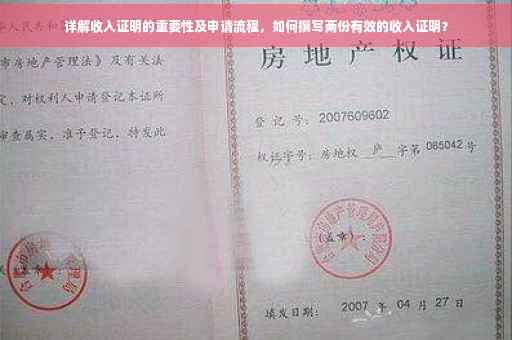 详解收入证明的重要性及申请流程，如何撰写两份有效的收入证明？
人民共和
市房地产管理法》及有关法
定，对权利人申请登记本证所
审查属实，准予登记，特发此
房地产权证
登记号：2007609602
权证字号：房地权 庐 字第 065042 号
(盖章)：
填发日期：2007 年 04 月 27 日